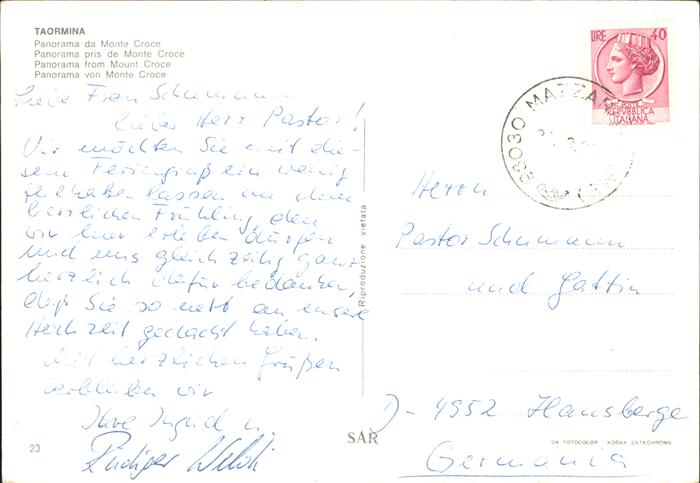 TAORMINA
Panorama da Monte Croce
Panorama pris de Monte Croce
Panorama from Mount Croce
Panorama von Monte Croce
Liebe Frau Schumann
Lieber Herr Pastor!
Wir möchten Sie mit die-
sem Feriengruß ein wenig
teilhaben lassen an dem
herrlichen Frühling, den
wir hier erleben dürfen
und uns gleichzeitig ganz
herzlich dafür bedanken,
daß Sie so nett an unsere
Hochzeit gedacht haben.
Mit herzlichen Grüßen
verbleiben wir
Ihre Ingrid u.
Rüdiger
23
SAR
Riproduzione vietata
LIRE 40
POSTE
REPVBBLICA
ITALIANA
98030 MAZZAR
Herrn
Pastor Schumann
und Gattin
D-4952 Hausberge
Germania
OK FOTOCOLOR - KODAK EKTACHROME